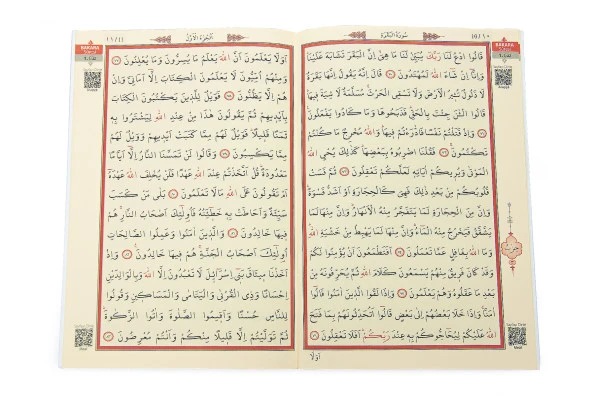 سُورَةُ الْبَقَرَةِ
قَالُوا ادْعُ لَنَا رَبَّكَ يُبَيِّنْ لَنَا مَا هِيَ إِنَّ الْبَقَرَ تَشَابَهَ عَلَيْنَا
وَإِنَّا إِنْ شَاءَ اللّٰهُ لَمُهْتَدُونَ ﴿٧٠﴾ قَالَ إِنَّهُ يَقُولُ إِنَّهَا بَقَرَةٌ
لَا ذَلُولٌ تُثِيرُ الْأَرْضَ وَلَا تَسْقِي الْحَرْثَ مُسَلَّمَةٌ لَا شِيَةَ فِيهَا
قَالُوا الْـٰٔنَ جِئْتَ بِالْحَقِّ فَذَبَحُوهَا وَمَا كَادُوا يَفْعَلُونَ
﴿٧١﴾ وَإِذْ قَتَلْتُمْ نَفْسًا فَادَّارَأْتُمْ فِيهَا وَاللّٰهُ مُخْرِجٌ مَا كُنْتُمْ
تَكْتُمُونَ ﴿٧٢﴾ فَقُلْنَا اضْرِبُوهُ بِبَعْضِهَا كَذٰلِكَ يُحْيِي اللّٰهُ
الْمَوْتٰى وَيُرِيكُمْ اٰيَاتِهِ لَعَلَّكُمْ تَعْقِلُونَ ﴿٧٣﴾ ثُمَّ قَسَتْ
قُلُوبُكُمْ مِنْ بَعْدِ ذٰلِكَ فَهِيَ كَالْحِجَارَةِ أَوْ أَشَدُّ قَسْوَةً
وَإِنَّ مِنَ الْحِجَارَةِ لَمَا يَتَفَجَّرُ مِنْهُ الْأَنْهَارُ وَإِنَّ مِنْهَا لَمَا
يَشَّقَّقُ فَيَخْرُجُ مِنْهُ الْمَاءُ وَإِنَّ مِنْهَا لَمَا يَهْبِطُ مِنْ خَشْيَةِ اللّٰهِ
وَمَا اللّٰهُ بِغَافِلٍ عَمَّا تَعْمَلُونَ ﴿٧٤﴾ أَفَتَطْمَعُونَ أَنْ يُؤْمِنُوا لَكُمْ
وَقَدْ كَانَ فَرِيقٌ مِنْهُمْ يَسْمَعُونَ كَلَامَ اللّٰهِ ثُمَّ يُحَرِّفُونَهُ مِنْ
بَعْدِ مَا عَقَلُوهُ وَهُمْ يَعْلَمُونَ ﴿٧٥﴾ وَإِذَا لَقُوا الَّذِينَ اٰمَنُوا قَالُوا
اٰمَنَّا وَإِذَا خَلَا بَعْضُهُمْ إِلٰى بَعْضٍ قَالُوا أَتُحَدِّثُونَهُمْ بِمَا فَتَحَ
اللّٰهُ عَلَيْكُمْ لِيُحَاجُّوكُمْ بِهِ عِنْدَ رَبِّكُمْ أَفَلَا تَعْقِلُونَ ﴿٧٦﴾
أَوَلَا
BAKARA
اَلْجُزْءُ الْأَوَّلُ
أَوَلَا يَعْلَمُونَ أَنَّ اللّٰهَ يَعْلَمُ مَا يُسِرُّونَ وَمَا يُعْلِنُونَ ﴿٧٧﴾
وَمِنْهُمْ أُمِّيُّونَ لَا يَعْلَمُونَ الْكِتَابَ إِلَّا أَمَانِيَّ وَإِنْ
هُمْ إِلَّا يَظُنُّونَ ﴿٧٨﴾ فَوَيْلٌ لِلَّذِينَ يَكْتُبُونَ الْكِتَابَ
بِأَيْدِيهِمْ ثُمَّ يَقُولُونَ هٰذَا مِنْ عِنْدِ اللّٰهِ لِيَشْتَرُوا بِهِ
ثَمَنًا قَلِيلًا فَوَيْلٌ لَهُمْ مِمَّا كَتَبَتْ أَيْدِيهِمْ وَوَيْلٌ لَهُمْ
مِمَّا يَكْسِبُونَ ﴿٧٩﴾ وَقَالُوا لَنْ تَمَسَّنَا النَّارُ إِلَّا أَيَّامًا
مَعْدُودَةً قُلْ أَتَّخَذْتُمْ عِنْدَ اللّٰهِ عَهْدًا فَلَنْ يُخْلِفَ اللّٰهُ عَهْدَهُ
أَمْ تَقُولُونَ عَلَى اللّٰهِ مَا لَا تَعْلَمُونَ ﴿٨٠﴾ بَلٰى مَنْ كَسَبَ
سَيِّئَةً وَأَحَاطَتْ بِهِ خَطِيئَتُهُ فَأُولٰئِكَ أَصْحَابُ النَّارِ هُمْ
فِيهَا خَالِدُونَ ﴿٨١﴾ وَالَّذِينَ اٰمَنُوا وَعَمِلُوا الصَّالِحَاتِ
أُولٰئِكَ أَصْحَابُ الْجَنَّةِ هُمْ فِيهَا خَالِدُونَ ﴿٨٢﴾ وَإِذْ
أَخَذْنَا مِيثَاقَ بَنِي إِسْرَائِيلَ لَا تَعْبُدُونَ إِلَّا اللّٰهَ وَبِالْوَالِدَيْنِ
إِحْسَانًا وَذِي الْقُرْبٰى وَالْيَتَامٰى وَالْمَسَاكِينِ وَقُولُوا
لِلنَّاسِ حُسْنًا وَأَقِيمُوا الصَّلٰوةَ وَاٰتُوا الزَّكٰوةَ
ثُمَّ تَوَلَّيْتُمْ إِلَّا قَلِيلًا مِنْكُمْ وَأَنْتُمْ مُعْرِضُونَ ﴿٨٣﴾
BAKARA